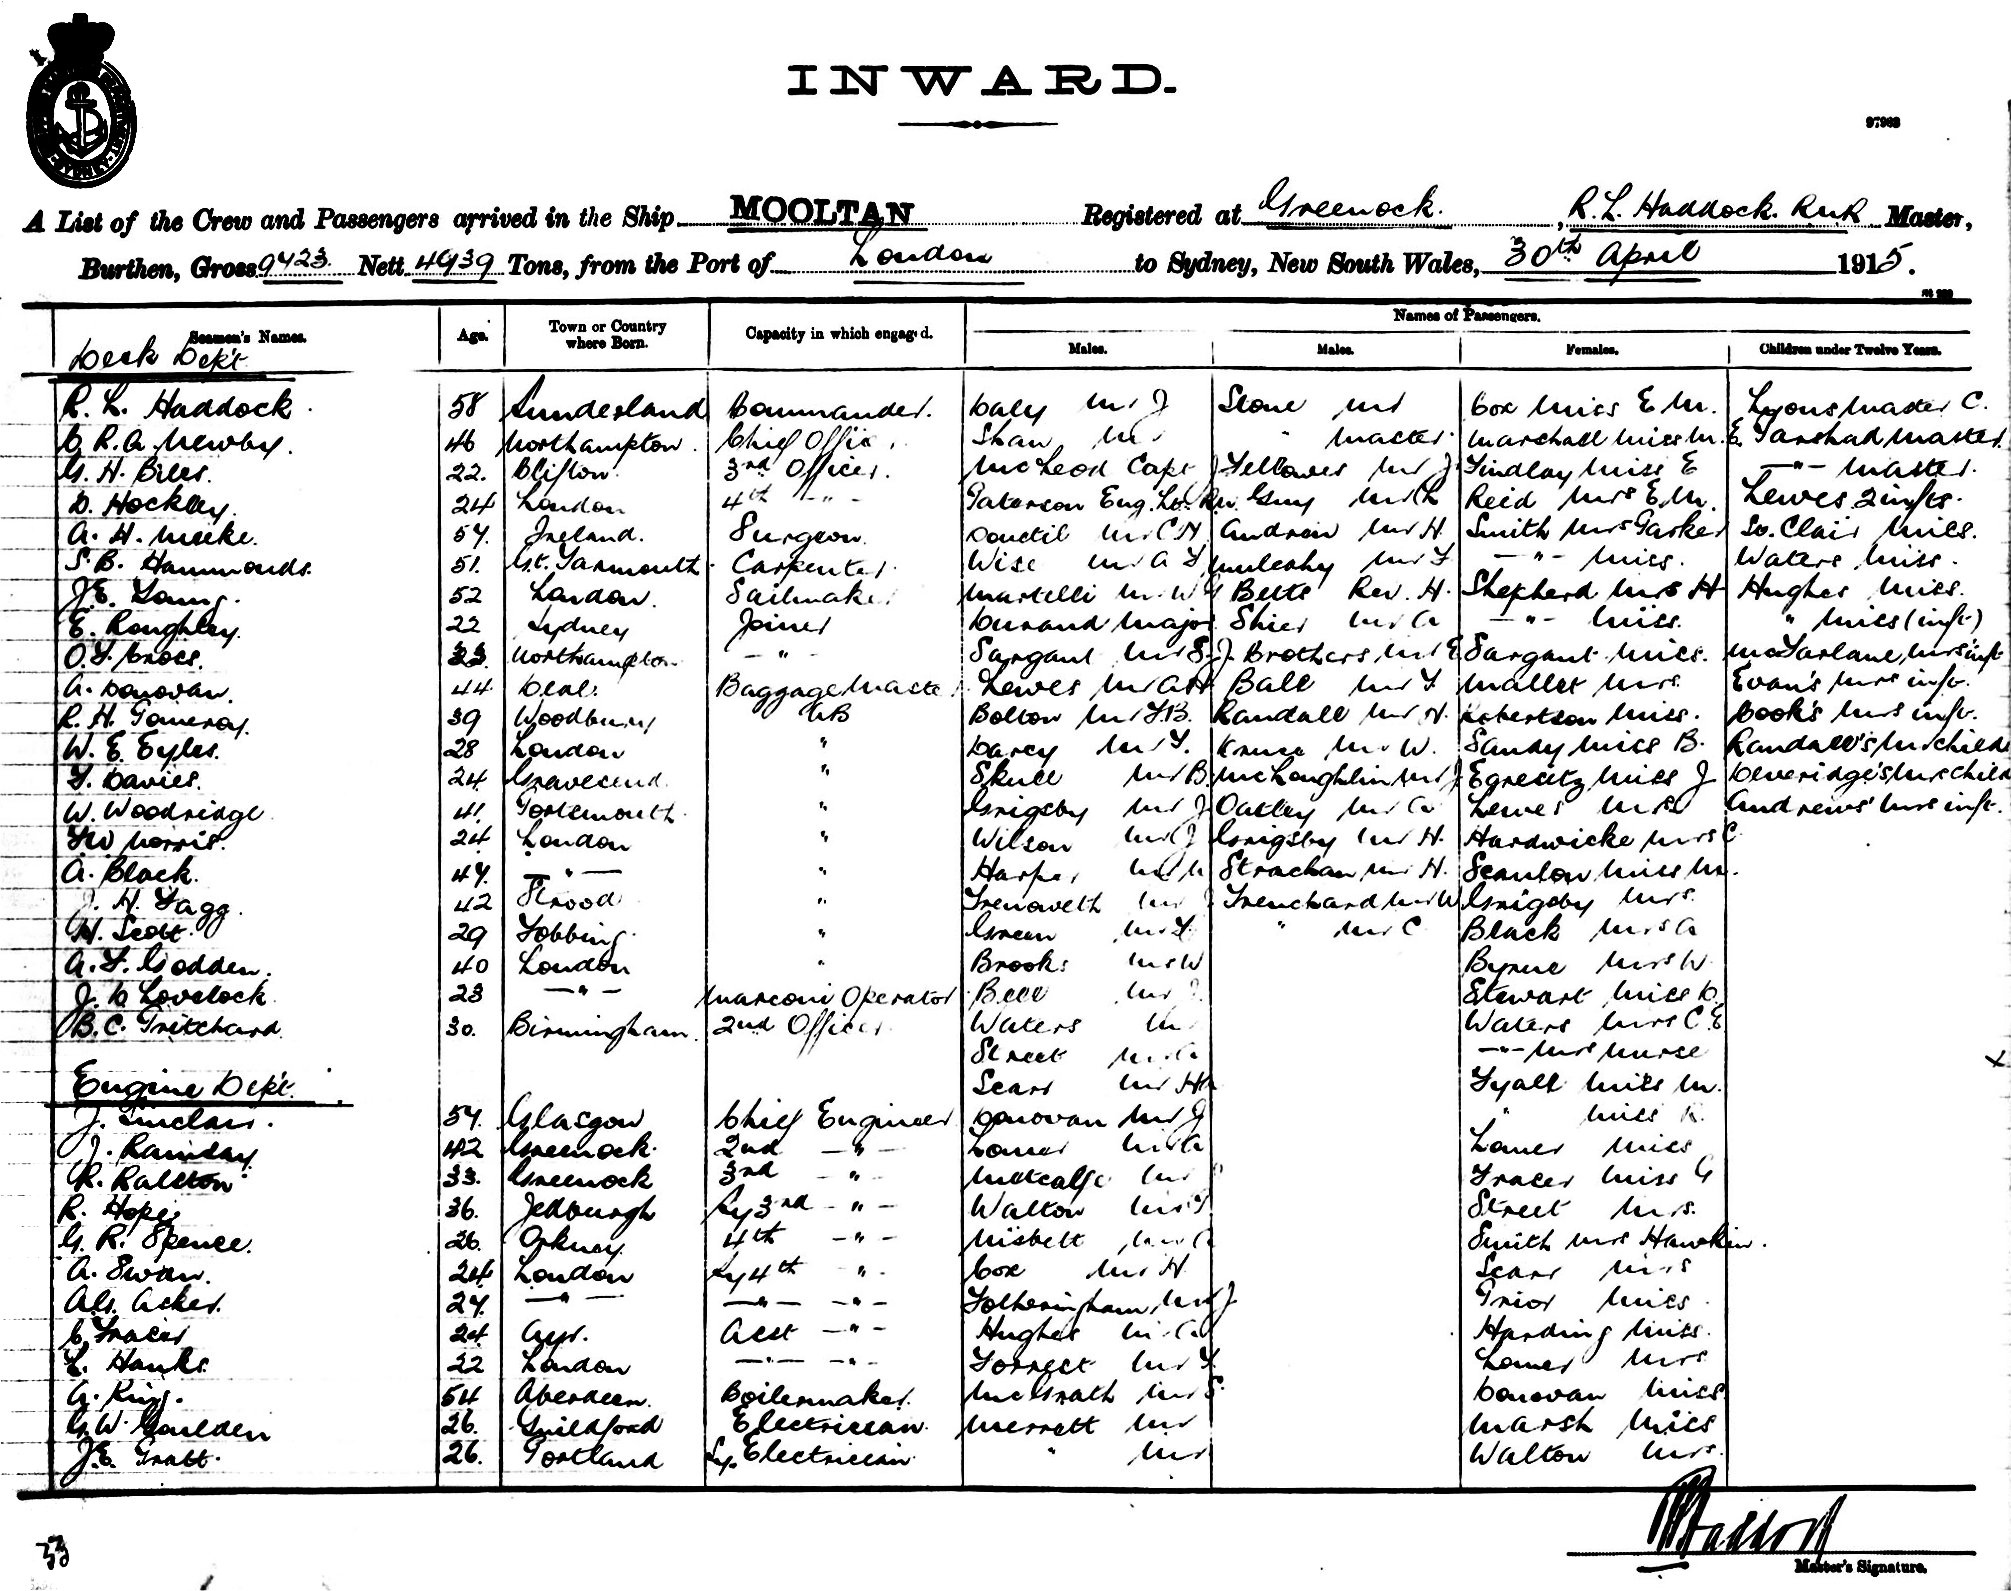 INWARD.
97963
A List of the Crew and Passengers arrived in the Ship MOOLTAN Registered at Greenock. , R. L. Haddock. RNR Master,
Burthen, Gross 9423 Nett 4939 Tons, from the Port of London to Sydney, New South Wales, 30th April 1915.
Names of Passengers.
Seamen's Names. Age. Town or Country where Born. Capacity in which engaged. Males. Males. Females. Children under Twelve Years.
Deck Dep't
R. L. Haddock. 58 Sunderland Commander. Daly Mr J Stone Mr Cox Miss E M. Lyons Master C.
C R. A Newby. 46 Northampton. Chief Offic Shaw Mr " Master Marshall Miss M. E. Tarshad Master
G. H. Biles. 22. Clifton. 3rd Officer. McLeod Capt J Fellowes Mr J. Findlay Miss E —"— Master.
D. Hockley. 24 London 4th -"- Paterson Eng. Lt. RN. Guy Mr L Reid Mrs E. M. Lewes 2 infts.
A. H. Meeke. 57. Ireland. Surgeon. Mr C H Andrew Mr H. Smith Mrs Parker St. Clair Miss.
S. B. Hammonds. 51. Gt. Yarmouth. Carpenter. Wise Mr A F Mr F —"— Miss. Waters Miss.
J. E. Laing. 52 London. Sailmaker Martelli Mr W G Betts Rev. H. Shepherd Mrs H Hughes Miss.
E. Roughley. 22 Sydney Joiner Durand Major Shier Mr A —"— Miss. " Miss (inft)
O. F. Cross. 23. Northampton. —"— Sargant Mr S. J. Brothers Mr E Sargant Miss. McFarlane, Mrs inft
A. Donovan. 44. Deal. Baggage Master Lewes Mr A H Ball Mr F Mallet Mrs. Evan's Mrs inft.
R. H. Pomeroy. 39 Woodbury AB Bolton Mr F. B. Randall Mr H. Robertson Miss. Cook's Mrs inft.
W. E. Eyles. 28 London " Darcy Mr F. Kruse Mr W. Sandy Miss B. Randall's Mrs child
F. Davies. 24. Gravesend. " Skull Mr B. McLoughlin Mr J. Miss J Deveridge's Mrs child
W. Woodridge 41. Portsmouth. " Grigsby Mr J Oatley Mr A Lewes Mrs Andrews' Mrs inft.
F W Morris. 24. London " Wilson Mr J Grigsby Mr H. Hardwicke Mrs C
A. Black. 47. —"— " Harper Mr Strachan Mr H. Scanlon Miss M.
J. H. Fagg. 42 Strood " Trenoweth Mr J Trenchard Mr W Grigsby Mrs.
H. Scott. 29 Fobbing. " Green Mr F. " Mr C Black Mrs A
A. F. Godden. 40 London " Brooks Mr W Byrne Mrs W.
J. D Lovelock. 23 —"— Marconi Operator Bell Mr J. Stewart Miss D.
B. C. Pritchard. 30. Birmingham. 2nd Officer Waters Mr Waters Mrs C. E
Street Mr A —"— Mrs Nurse
Engine Dep't. Sears Mr H Lyall Miss M.
J. Sinclair. 57. Glasgow Chief Engineer Donovan Mr J " Miss K.
J. Ramsay 42 Greenock. 2nd —"— Lomer Mr A Lomer Miss
R. Ralston 33. Greenock 3rd —"— Metcalfe Mr Fraser Miss G
R. Hope 36. Jedburgh Jy 3rd —"— Walton Mr Street Mrs.
G. R. Spence. 26. Orkney. 4th —"— Nisbett Mr Smith Mrs Hawkin.
A. Swan. 24. London Jy 4th " Cox Mr H. Sears Mrs
A. G. Acker. 27. —"— —"— —"— Fotheringham, Mr J. Prior Miss.
C. Fraser 24. Ayr. Asst —"— Hughes Mr Harding Miss.
L. Hanks 22 London —"— —"— Forrest Mr F Lomer Mrs
A. King. 54 Aberdeen. Boilermaker. McGrath Mr S. Donovan Miss
G. W. Goulden 26. Guildford Electrician. Merrett Mr Marsh Miss
J. E. Pratt. 26. Portland Jy. Electrician. " Mr Walton Mrs.
33
Master's Signature.